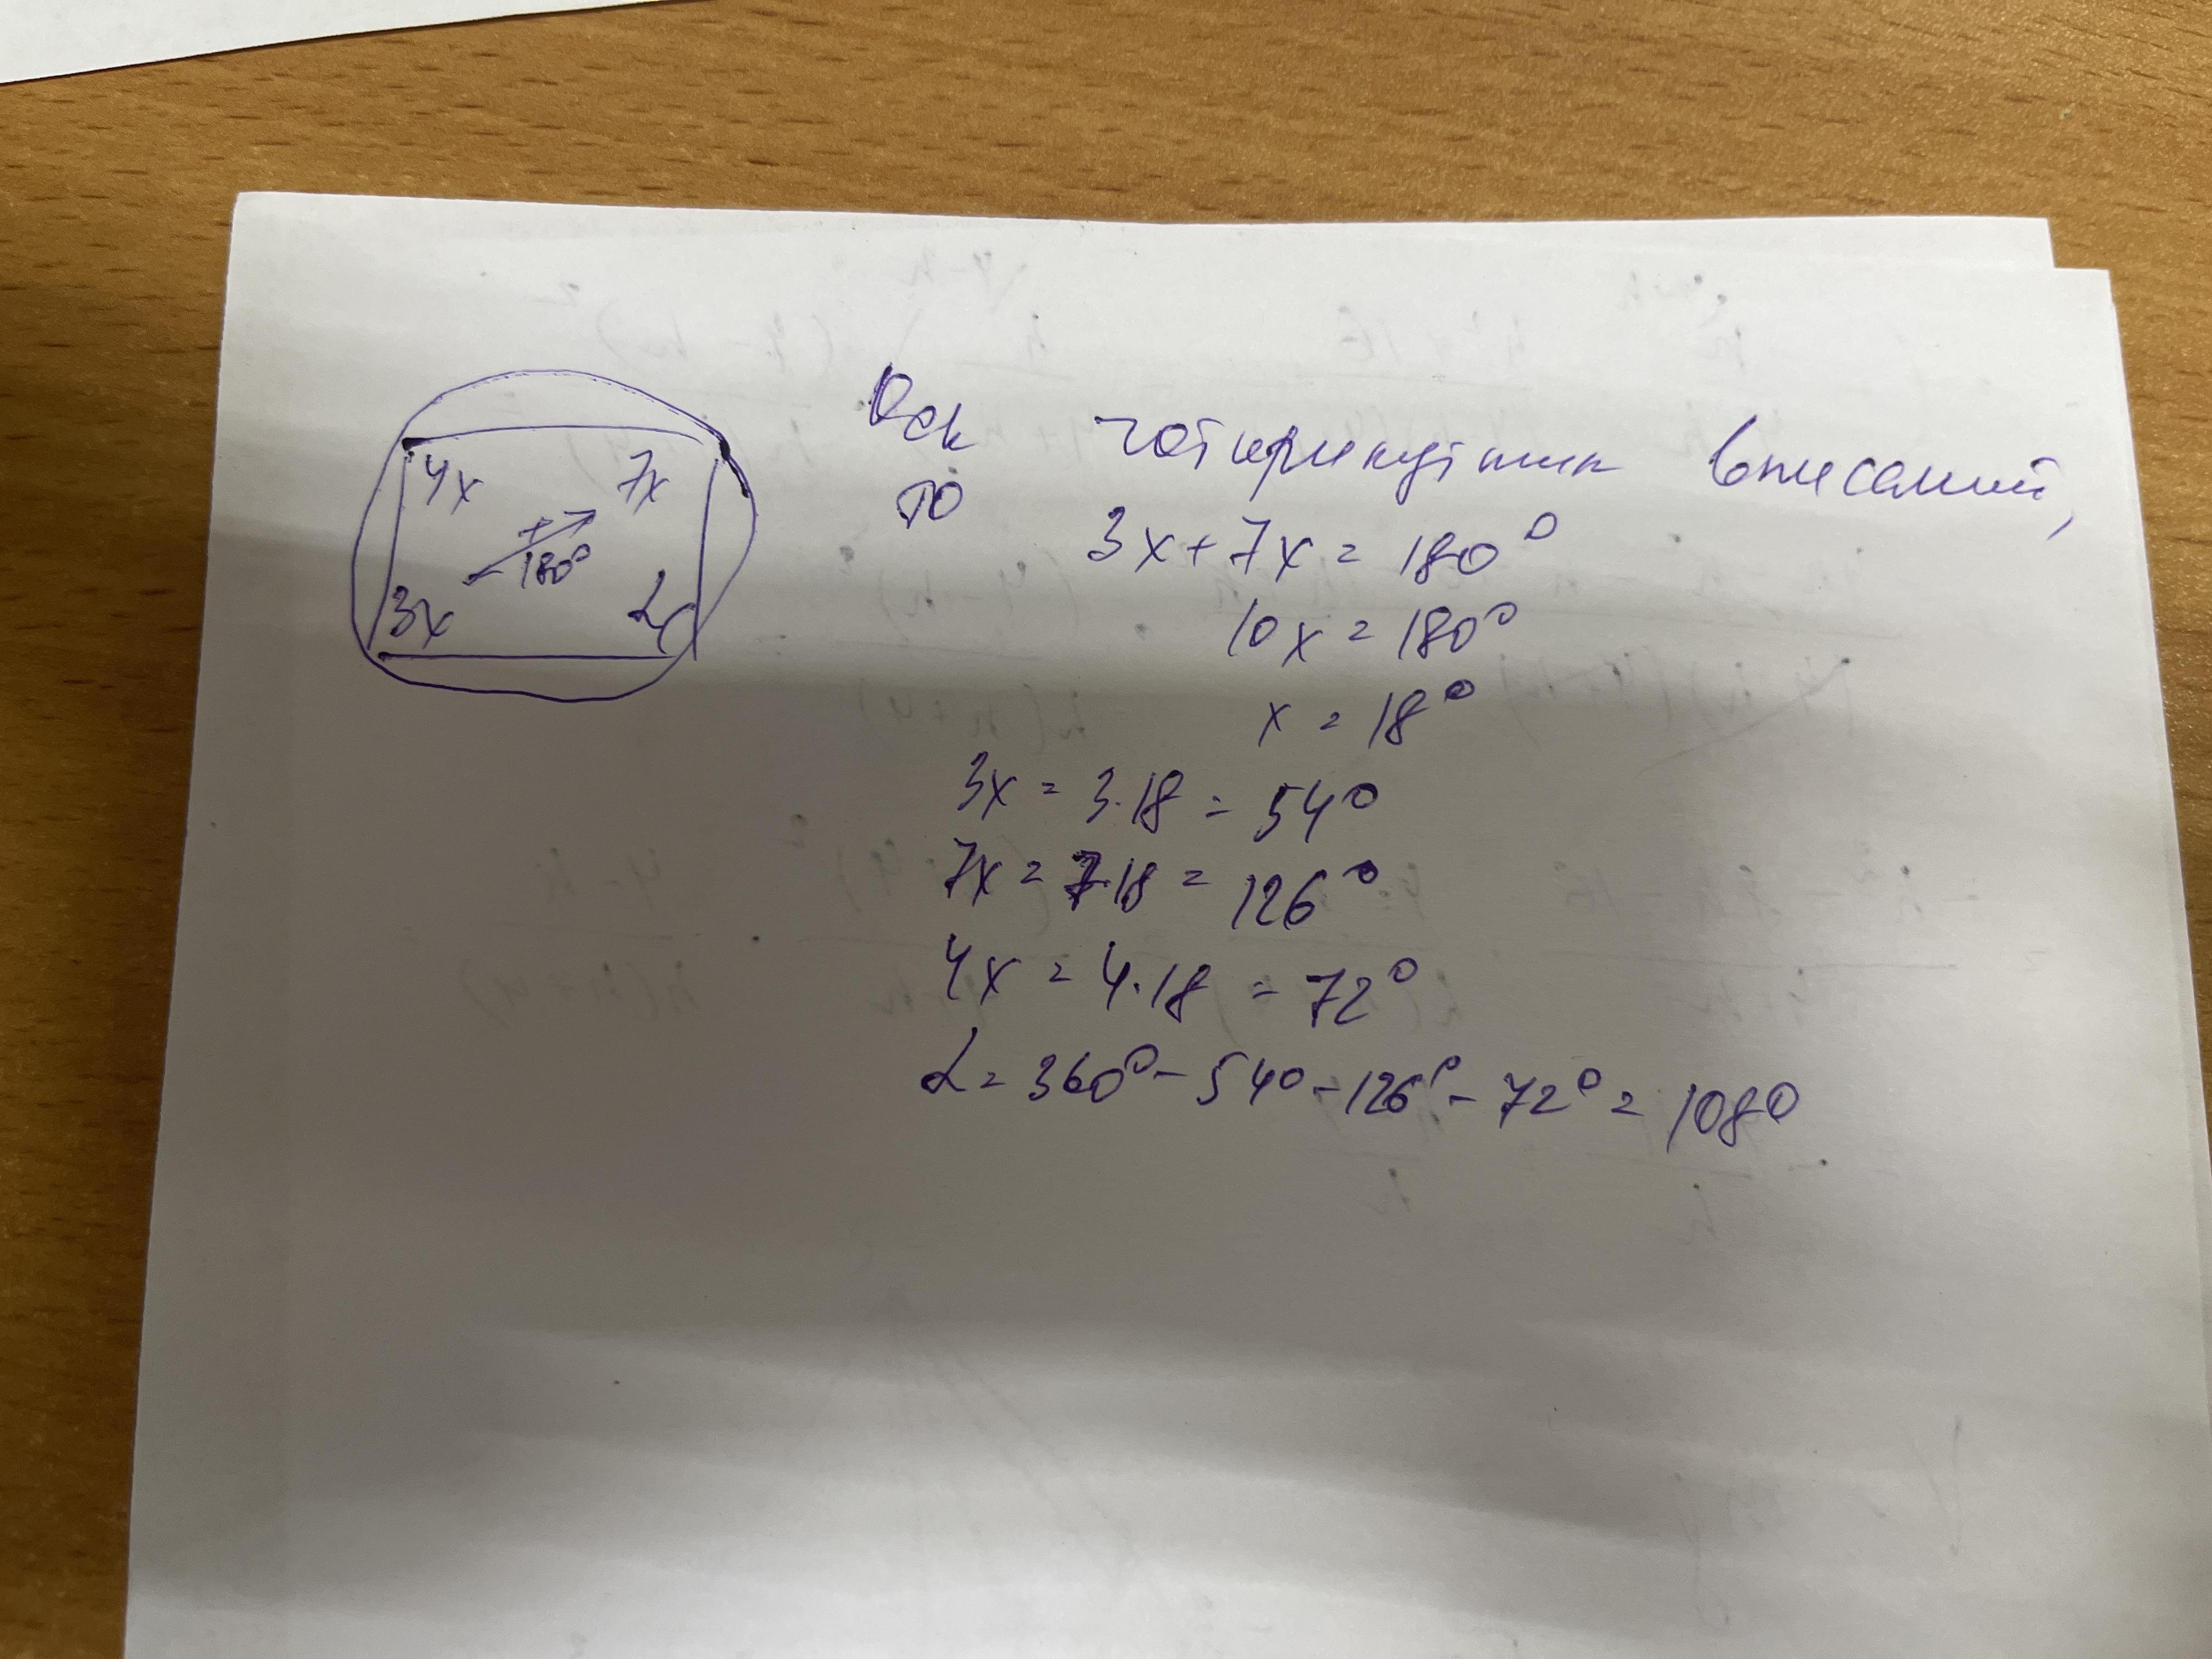 4x 7x
+
180°
3x α
Оск чотирикутник вписаний,
то
3x + 7x = 180°
10x = 180°
x = 18°
3x = 3·18 = 54°
7x = 7·18 = 126°
4x = 4·18 = 72°
α = 360° - 54° - 126° - 72° = 108°